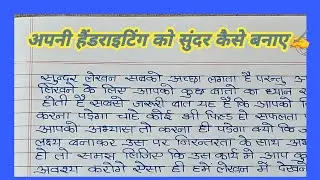 अपनी हैंडराइटिंग को सुंदर कैसे बनाए✍️
सुन्दर लेखन सबको अच्छा लगता है परन्तु अ
लिखने के लिए आपको कुछ बातो का ध्यान र
होती है सबसे जरूरी बात यह है कि आपको नि
करना पड़ेगा चाहे कोई भी फिल्ड हो सफलता प
आपको अभ्यास तो करना ही पड़ेगा क्यो कि ज
लक्ष्य बनाकर उस पर निरन्तरता के साथ अभ
हो तो समझ लिजिए कि उस कार्य मे आप कु
अवश्य करोगे ऐसा ही हमे लेखन में देखने